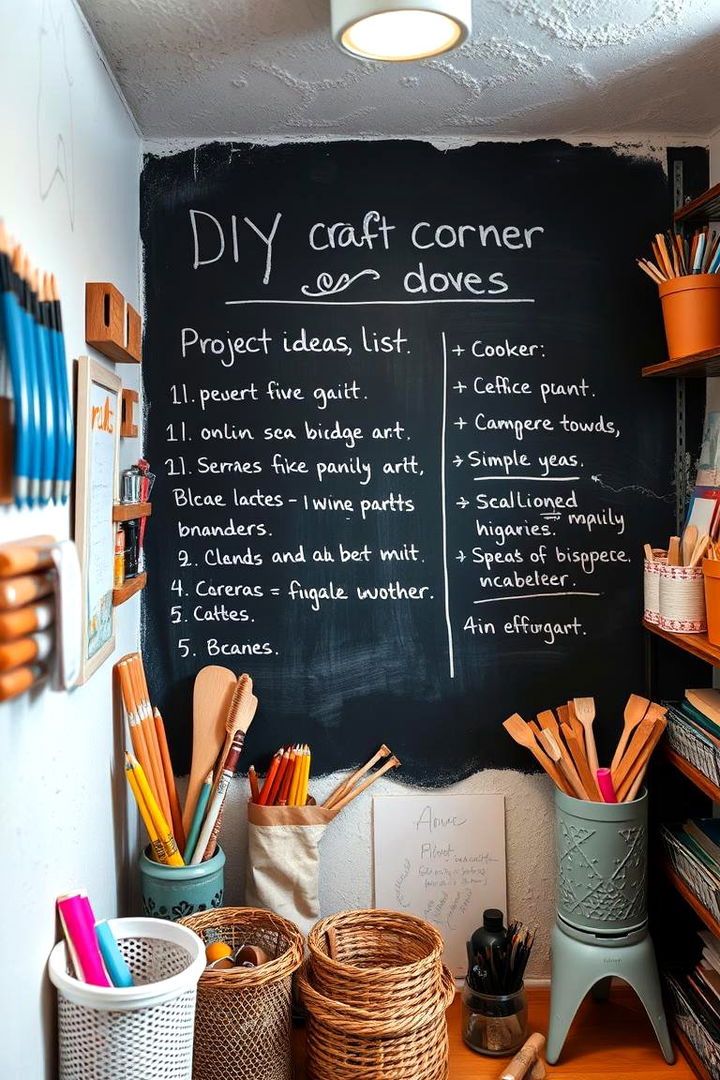 DIY craft corner
doves
Project ideas, list.
11. pevert five gaitt.
11. onlin sca bicdge art.
21. Sernaes fike panily artt,
Blcae lactes - I wine partts
bnanders.
9. Clands and ah bet mitt.
4. Careras = fiığale wother.
5. Cattes.
5. Bcanes.
+ Cooker:
+ Ceffice pcant.
+ Campere towds,
→ Simple yeas.
→ Scallioned
higaries. mpuily
→ Speas of bisppece.
ncabeleer.
4in effurgart.